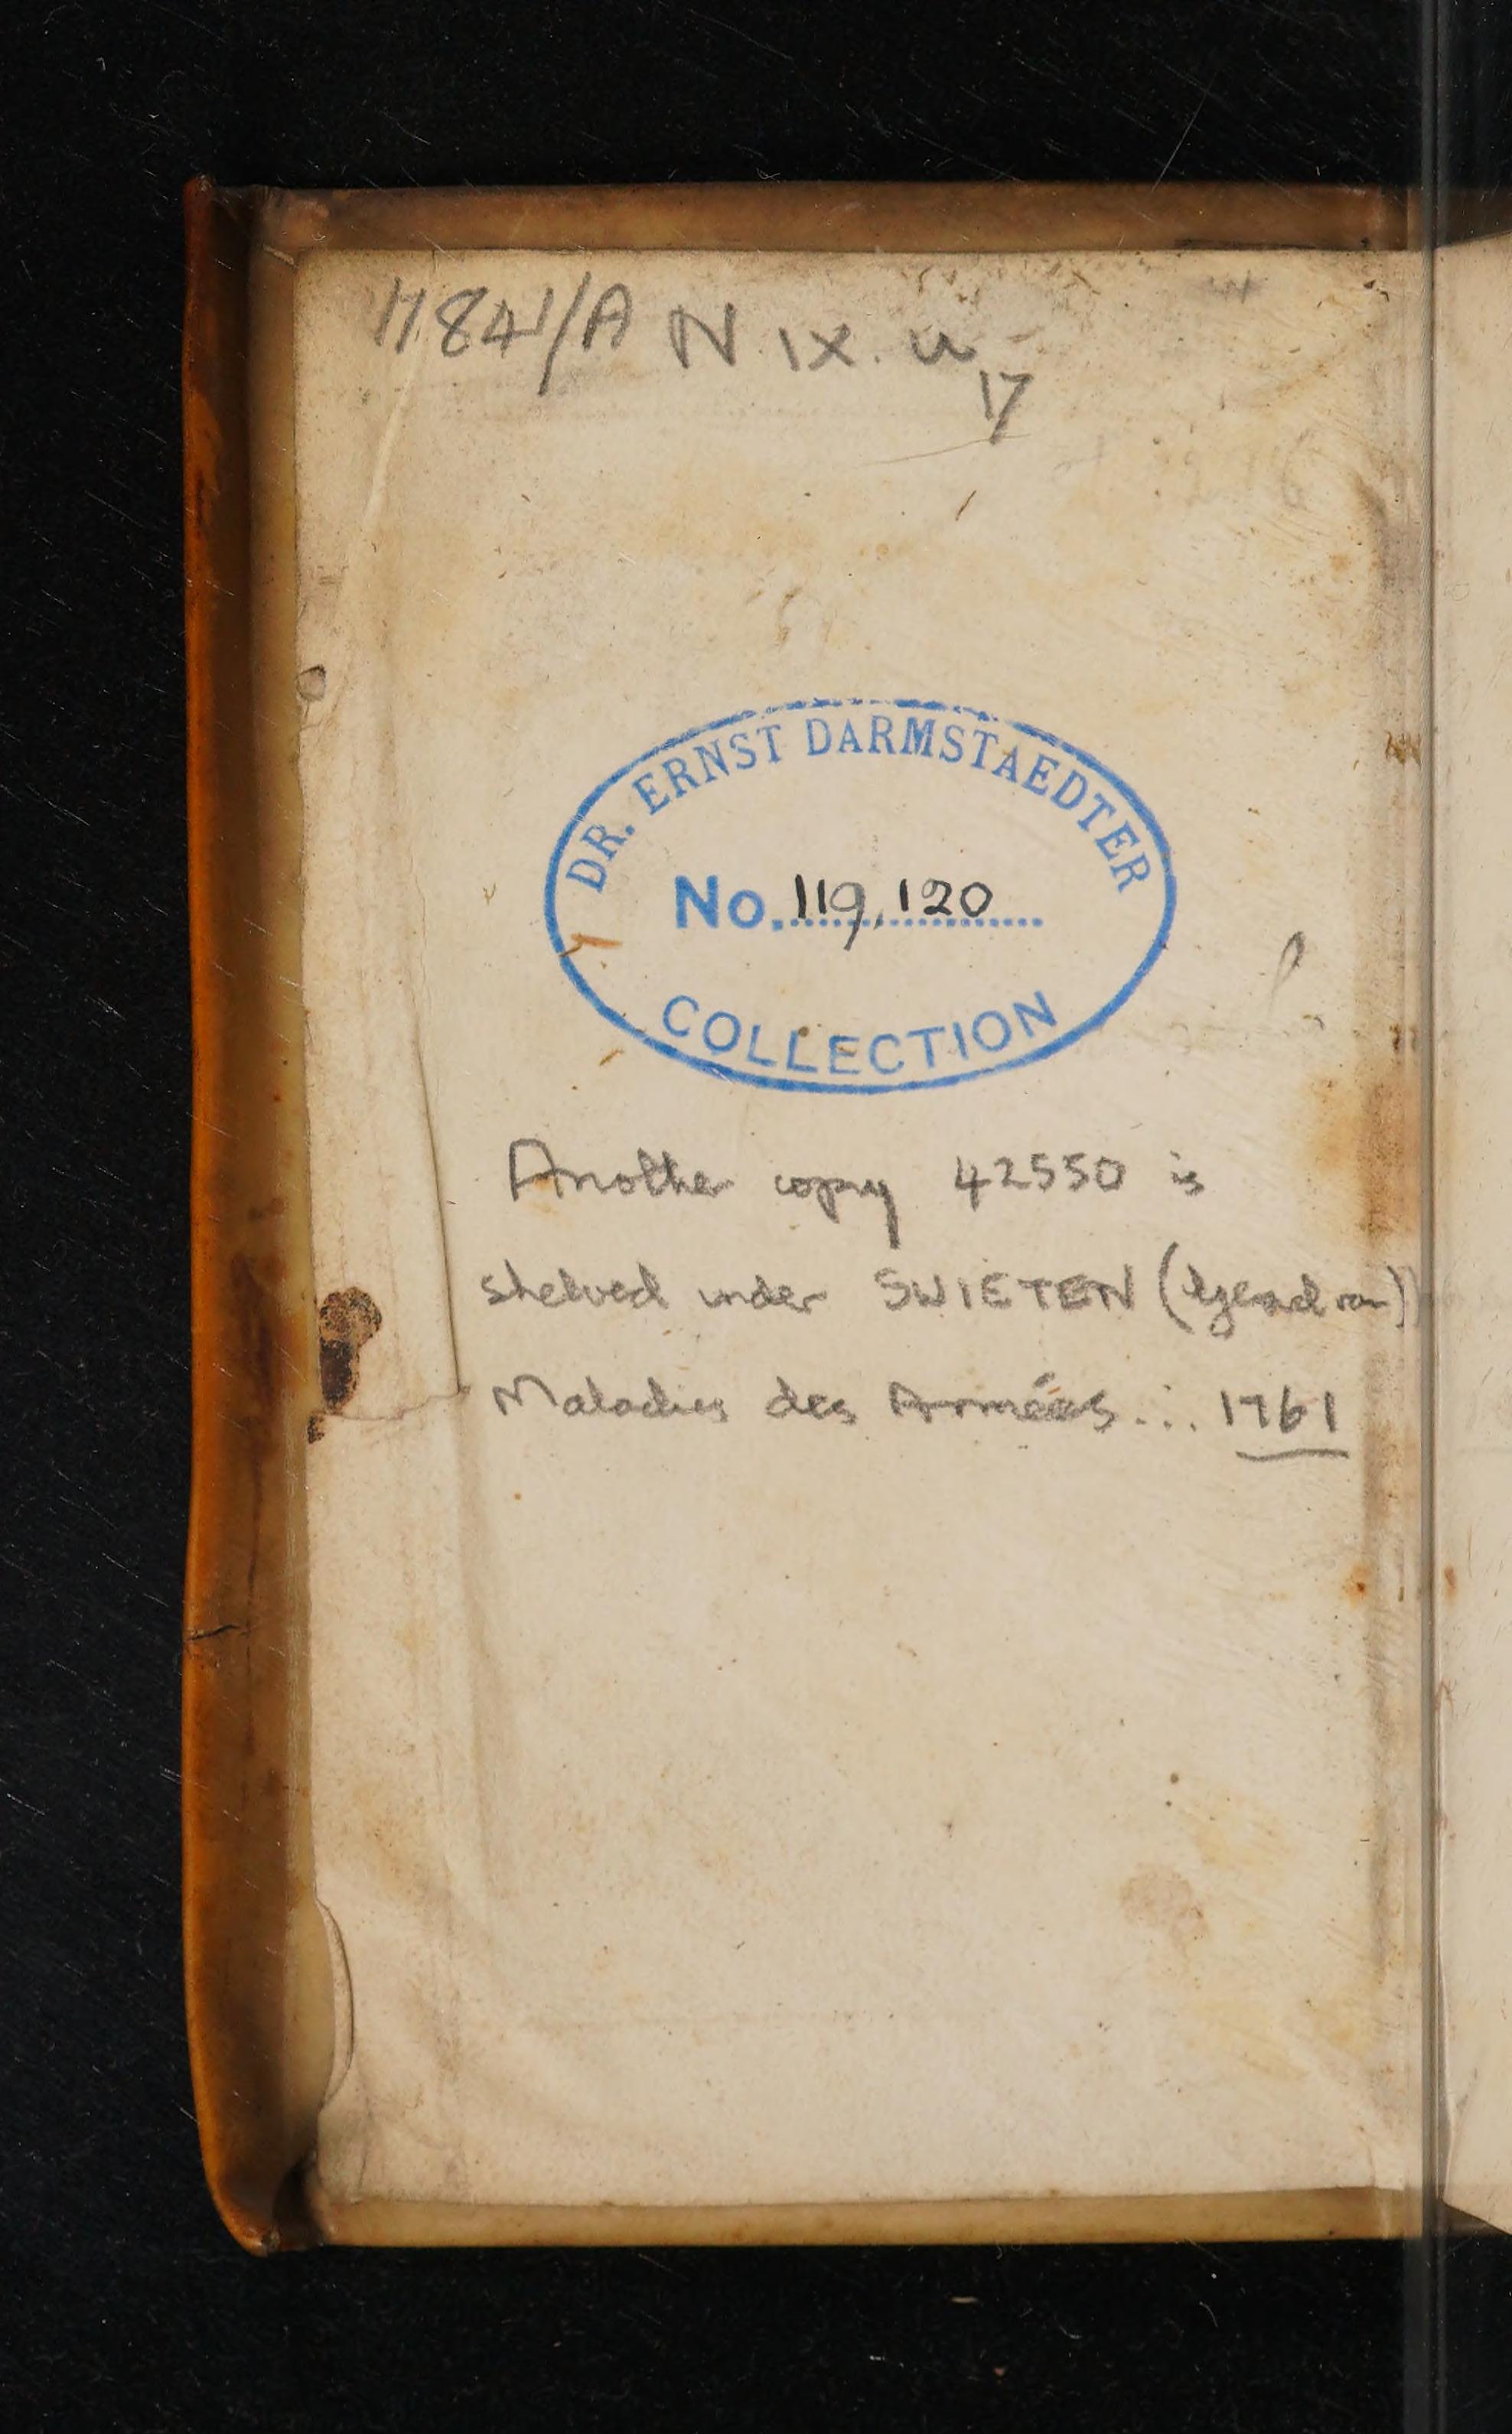 11841/A N. IX. u
17
DR. ERNST DARMSTAEDTER
No. 119,120
COLLECTION
Another copy 42550 is
shelved under SWIETEN (Gerard van)
Maladies des Armées... 1761